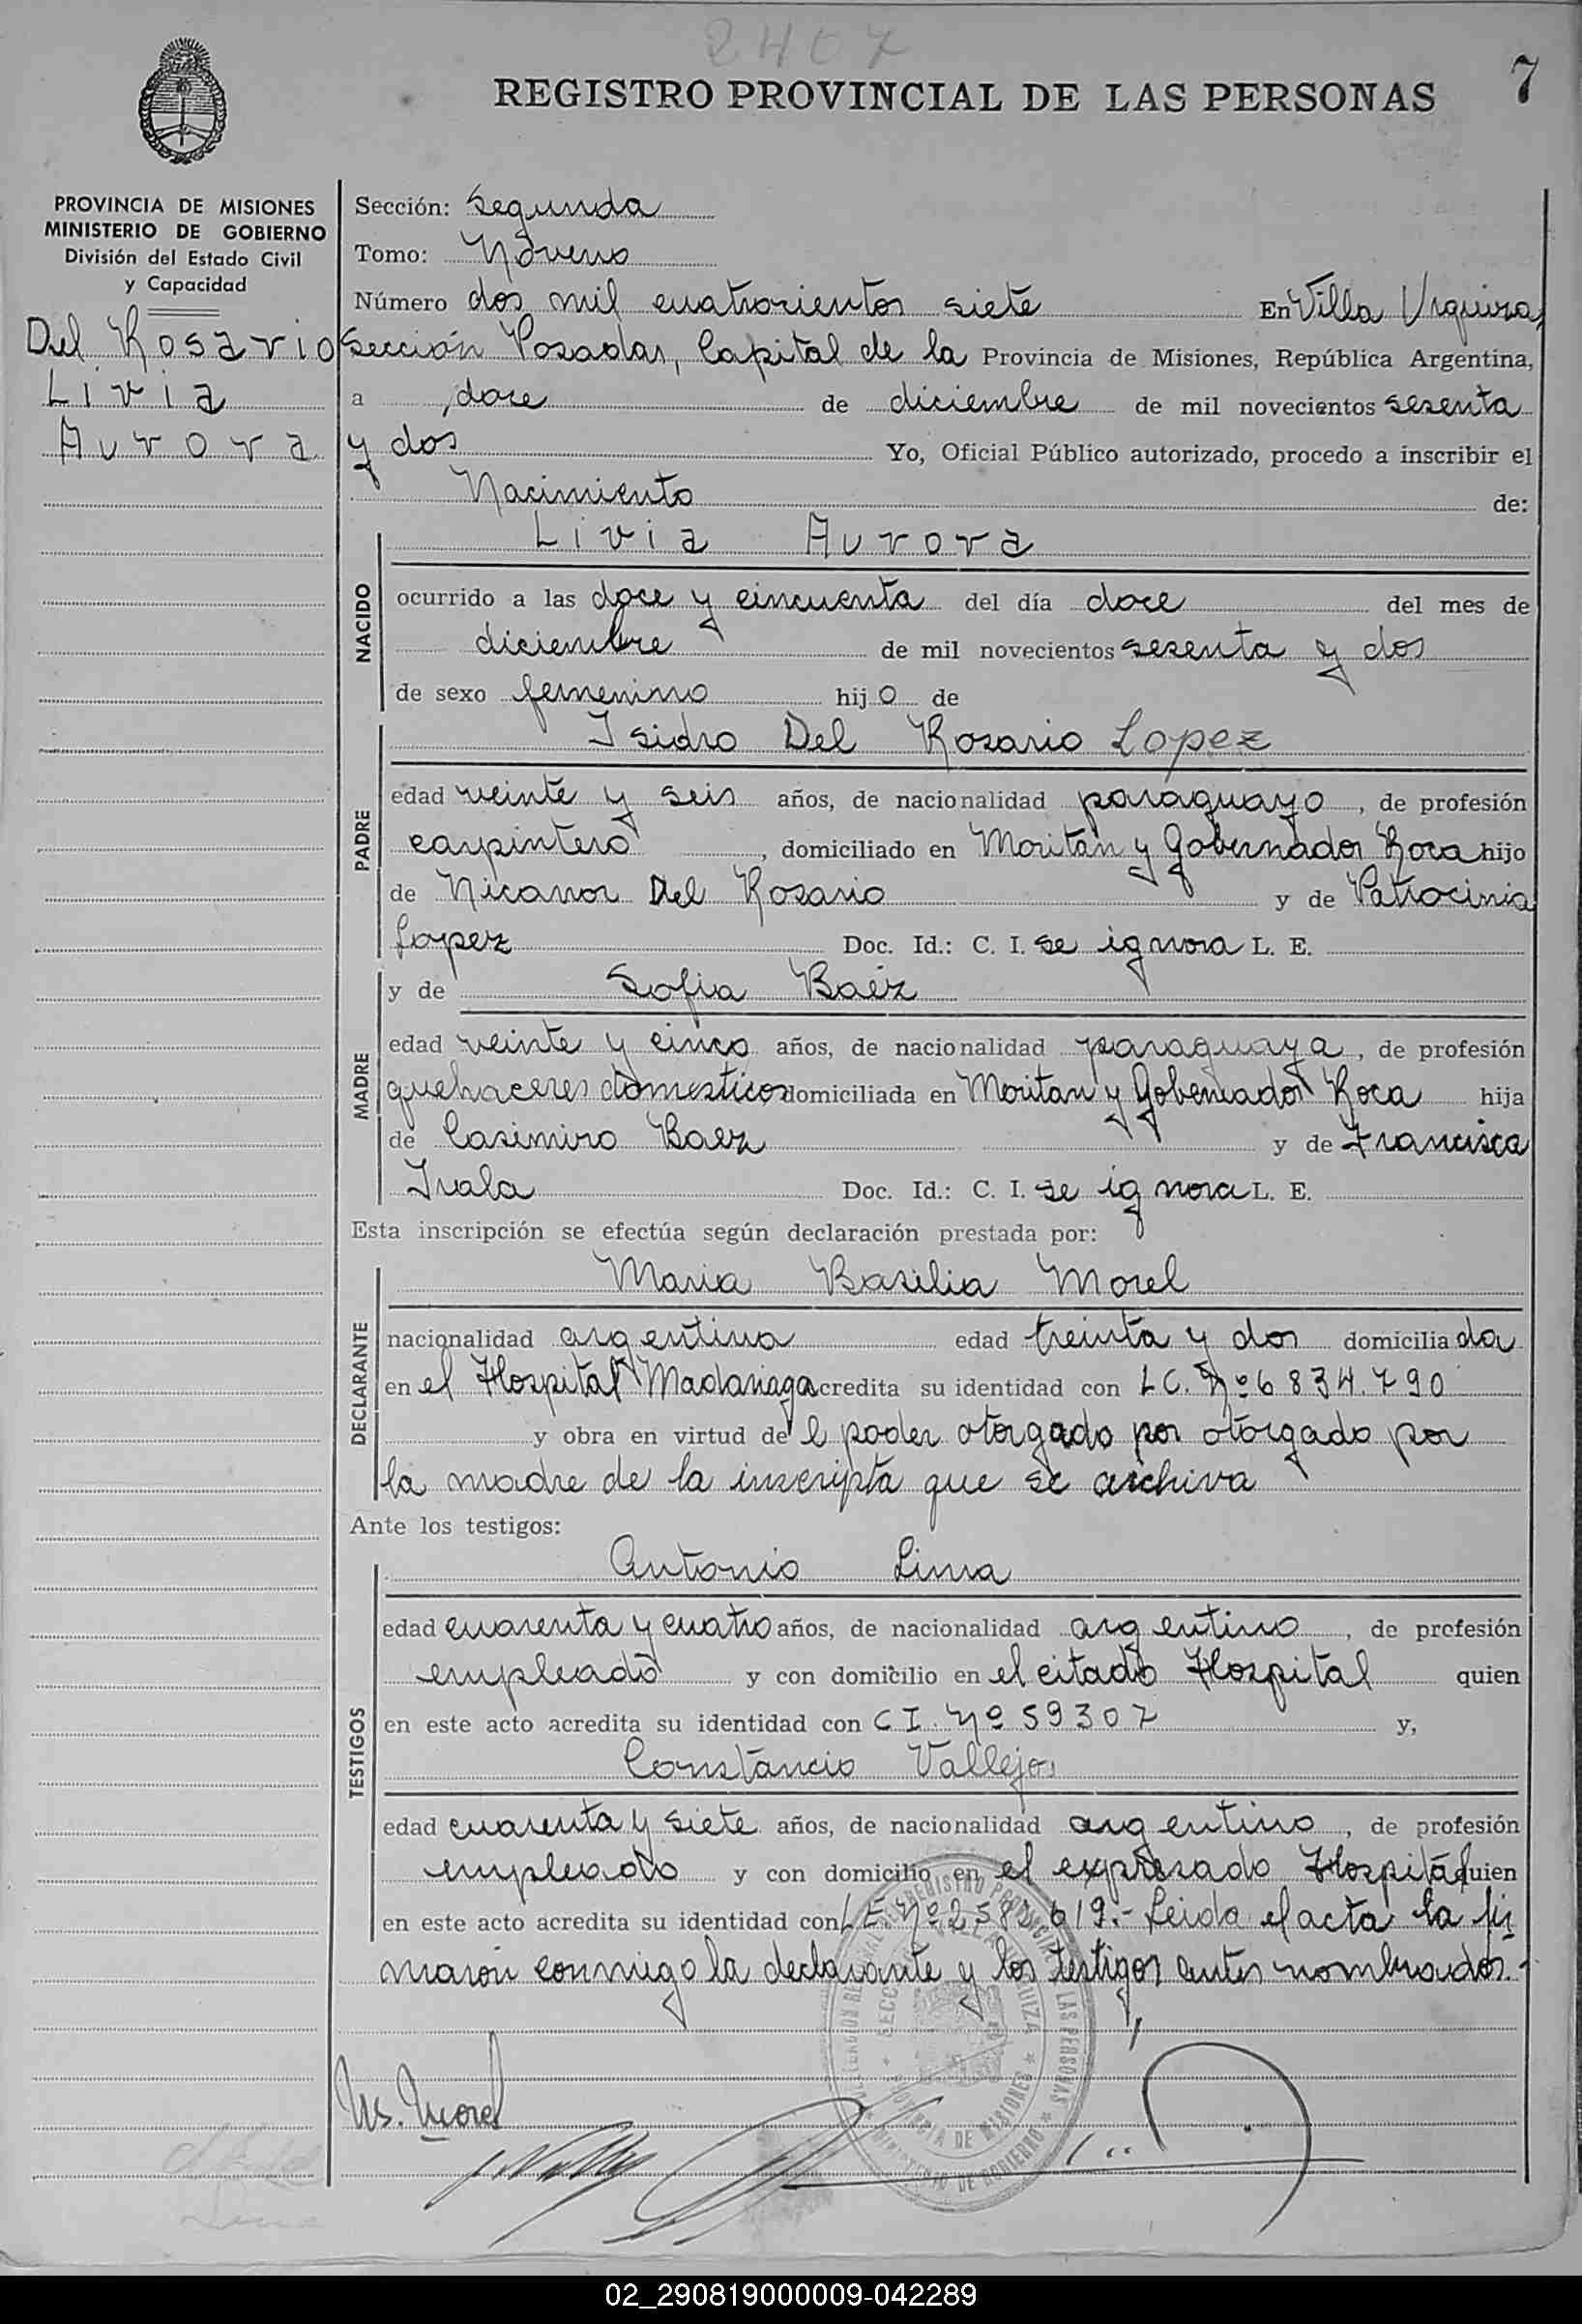 2407
REGISTRO PROVINCIAL DE LAS PERSONAS
7
PROVINCIA DE MISIONES
MINISTERIO DE GOBIERNO
División del Estado Civil
y Capacidad
Del Rosario
Livia
Aurora
Sección: Segunda
Tomo: Noveno
Número dos mil cuatrocientos siete En Villa Urquiza,
Sección Posadas, Capital de la Provincia de Misiones, República Argentina,
a doce de diciembre de mil novecientos sesenta
y dos Yo, Oficial Público autorizado, procedo a inscribir el
Nacimiento de:
NACIDO
Livia Aurora
ocurrido a las doce y cincuenta del día doce del mes de
diciembre de mil novecientos sesenta y dos
de sexo femenino hijo de
PADRE
Isidro Del Rosario Lopez
edad veinte y seis años, de nacionalidad paraguayo, de profesión
carpintero, domiciliado en Moritan y Gobernador Roca hijo
de Nicanor Del Rosario y de Patrocinia
Lopez Doc. Id.: C. I. se ignora L. E.
MADRE
y de Sofia Baéz
edad veinte y cinco años, de nacionalidad paraguaya, de profesión
quehaceres domesticos domiciliada en Moritan y Gobernador Roca hija
de Casimiro Baez y de Francisca
Irala Doc. Id.: C. I. se ignora L. E.
Esta inscripción se efectúa según declaración prestada por:
DECLARANTE
Maria Basilia Morel
nacionalidad argentina edad treinta y dos domiciliada
en el Hospital Madariaga acredita su identidad con LC. Nº 6834.790
y obra en virtud del poder otorgado por otorgado por
la madre de la inscripta que se archiva
Ante los testigos:
TESTIGOS
Antonio Lima
edad cuarenta y cuatro años, de nacionalidad argentino, de profesión
empleado y con domicilio en el citado Hospital quien
en este acto acredita su identidad con C I. Nº 59307 y,
Constancio Vallejos
edad cuarenta y siete años, de nacionalidad argentino, de profesión
empleado y con domicilio en el expresado Hospital quien
en este acto acredita su identidad con L E. Nº 619.- Leida el acta la fir
maron conmigo la declarante y los testigos antes nombrados.-
SECCION VILLA URQUIZA
PROVINCIA DE MISIONES
MINISTERIO DE GOBIERNO
Ms. Morel
02_290819000009-042289